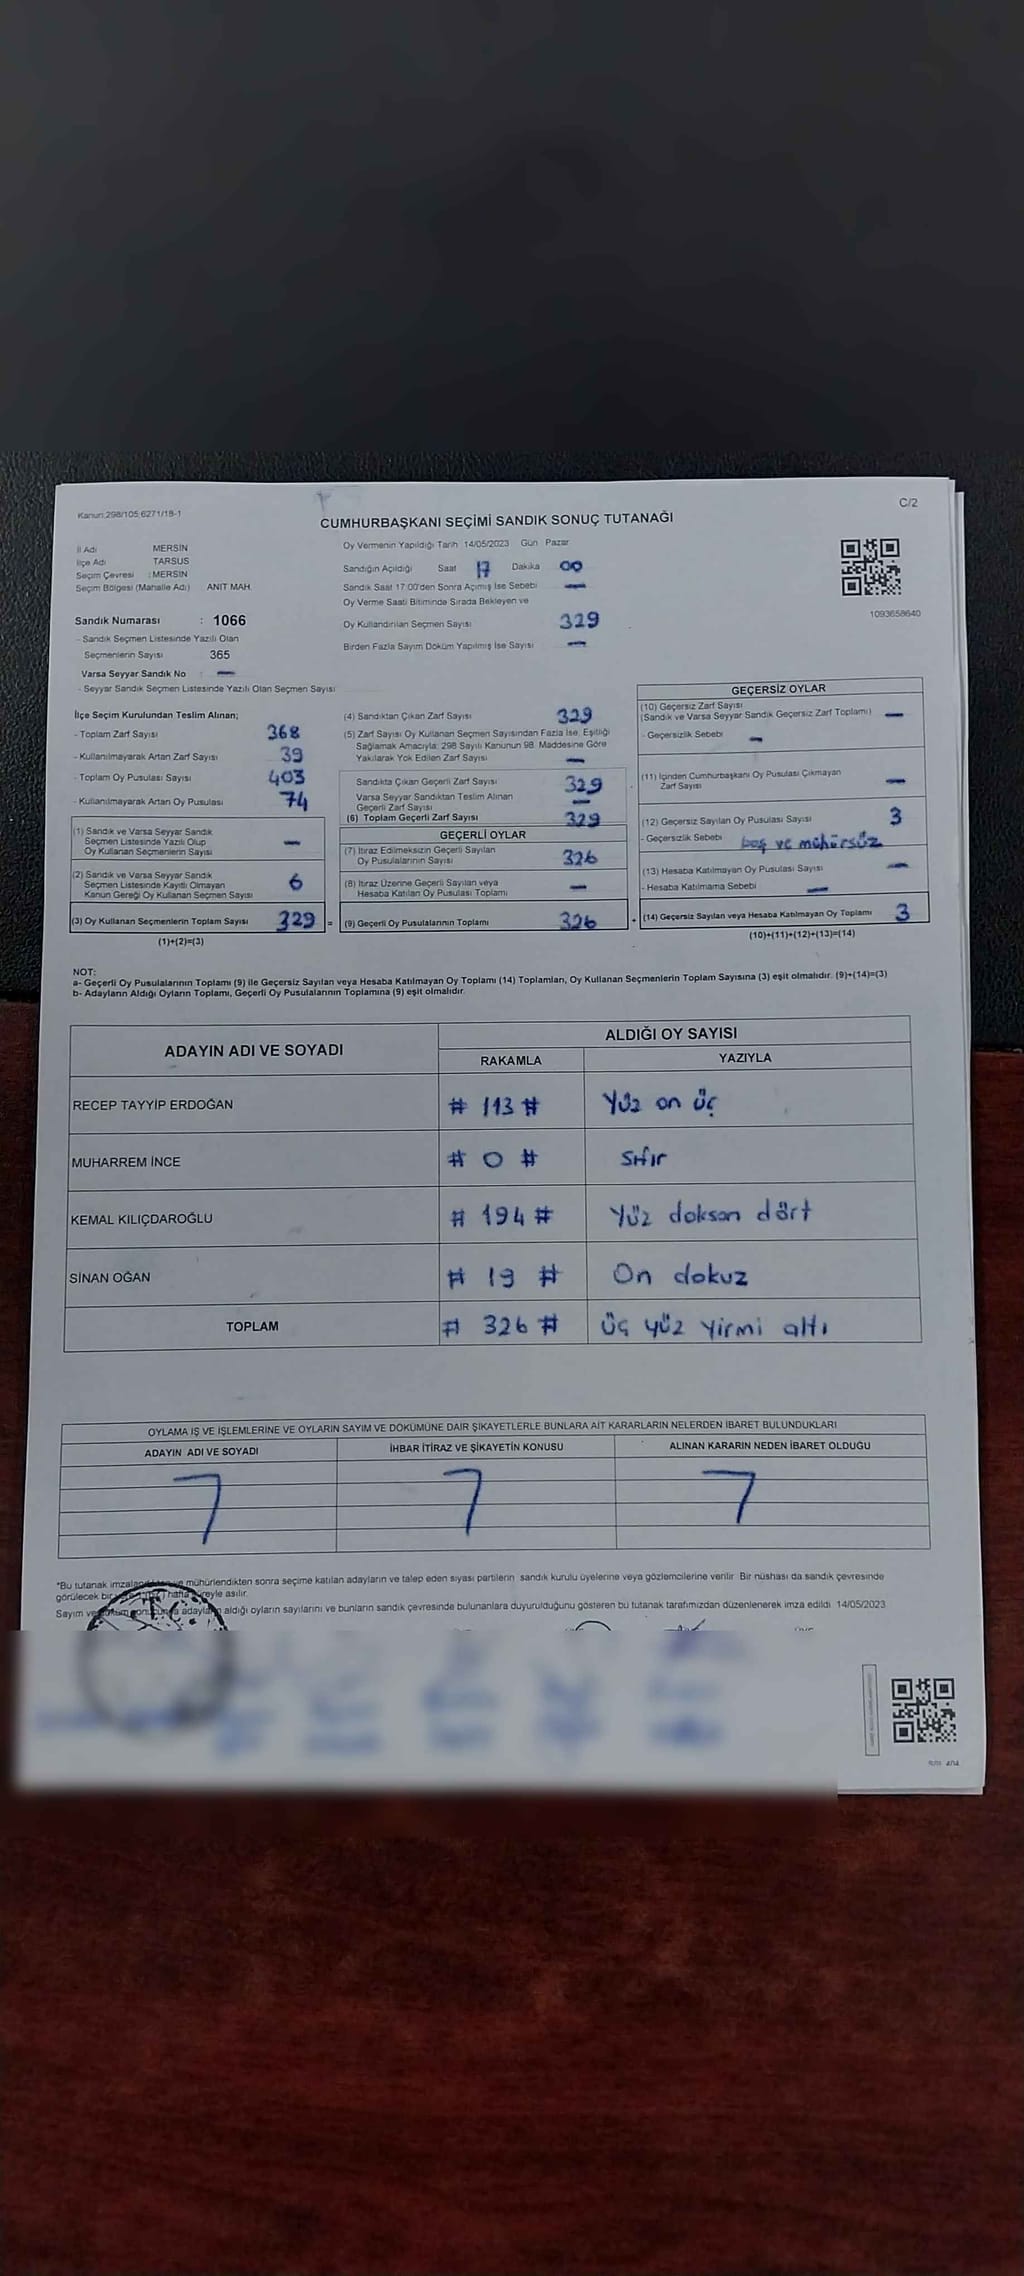 Kanun:298/105;6271/18-1
C/2
CUMHURBAŞKANI SEÇİMİ SANDIK SONUÇ TUTANAĞI
İl Adı MERSİN
İlçe Adı TARSUS
Seçim Çevresi : MERSİN
Seçim Bölgesi (Mahalle Adı) ANIT MAH.
Sandık Numarası : 1066
- Sandık Seçmen Listesinde Yazılı Olan
Seçmenlerin Sayısı 365
Varsa Seyyar Sandık No : —
- Seyyar Sandık Seçmen Listesinde Yazılı Olan Seçmen Sayısı
Oy Vermenin Yapıldığı Tarih 14/05/2023 Gün Pazar
Sandığın Açıldığı Saat 17 Dakika 00
Sandık Saat 17:00'den Sonra Açımış İse Sebebi —
Oy Verme Saati Bitiminde Sırada Bekleyen ve
Oy Kullandırılan Seçmen Sayısı 329
Birden Fazla Sayım Döküm Yapılmış İse Sayısı —
1093658640
İlçe Seçim Kurulundan Teslim Alınan;
- Toplam Zarf Sayısı 368
- Kullanılmayarak Artan Zarf Sayısı 39
- Toplam Oy Pusulası Sayısı 403
- Kullanılmayarak Artan Oy Pusulası 74
(1) Sandık ve Varsa Seyyar Sandık
Seçmen Listesinde Yazılı Olup
Oy Kullanan Seçmenlerin Sayısı —
(2) Sandık ve Varsa Seyyar Sandık
Seçmen Listesinde Kayıtlı Olmayan
Kanun Gereği Oy Kullanan Seçmen Sayısı 6
(3) Oy Kullanan Seçmenlerin Toplam Sayısı 329 =
(1)+(2)=(3)
(4) Sandıktan Çıkan Zarf Sayısı 329
(5) Zarf Sayısı Oy Kullanan Seçmen Sayısından Fazla İse, Eşitliği
Sağlamak Amacıyla; 298 Sayılı Kanunun 98. Maddesine Göre
Yakılarak Yok Edilen Zarf Sayısı —
Sandıkta Çıkan Geçerli Zarf Sayısı 329
Varsa Seyyar Sandıktan Teslim Alınan
Geçerli Zarf Sayısı —
(6) Toplam Geçerli Zarf Sayısı 329
GEÇERLİ OYLAR
(7) İtiraz Edilmeksizin Geçerli Sayılan
Oy Pusulalarının Sayısı 326
(8) İtiraz Üzerine Geçerli Sayılan veya
Hesaba Katılan Oy Pusulası Toplamı —
(9) Geçerli Oy Pusulalarının Toplamı 326 +
GEÇERSİZ OYLAR
(10) Geçersiz Zarf Sayısı
(Sandık ve Varsa Seyyar Sandık Geçersiz Zarf Toplamı) —
- Geçersizlik Sebebi —
(11) İçinden Cumhurbaşkanı Oy Pusulası Çıkmayan
Zarf Sayısı —
(12) Geçersiz Sayılan Oy Pusulası Sayısı 3
- Geçersizlik Sebebi boş ve mühürsüz
(13) Hesaba Katılmayan Oy Pusulası Sayısı —
- Hesaba Katılmama Sebebi —
(14) Geçersiz Sayılan veya Hesaba Katılmayan Oy Toplamı 3
(10)+(11)+(12)+(13)=(14)
NOT:
a- Geçerli Oy Pusulalarının Toplamı (9) ile Geçersiz Sayılan veya Hesaba Katılmayan Oy Toplamı (14) Toplamları, Oy Kullanan Seçmenlerin Toplam Sayısına (3) eşit olmalıdır. (9)+(14)=(3)
b- Adayların Aldığı Oyların Toplamı, Geçerli Oy Pusulalarının Toplamına (9) eşit olmalıdır.
ADAYIN ADI VE SOYADI ALDIĞI OY SAYISI
RAKAMLA YAZIYLA
RECEP TAYYİP ERDOĞAN # 113 # Yüz on üç
MUHARREM İNCE # 0 # Sıfır
KEMAL KILIÇDAROĞLU # 194 # Yüz doksan dört
SİNAN OĞAN # 19 # On dokuz
TOPLAM # 326 # Üç yüz yirmi altı
OYLAMA İŞ VE İŞLEMLERİNE VE OYLARIN SAYIM VE DÖKÜMÜNE DAİR ŞİKAYETLERLE BUNLARA AİT KARARLARIN NELERDEN İBARET BULUNDUKLARI
ADAYIN ADI VE SOYADI İHBAR İTİRAZ VE ŞİKAYETİN KONUSU ALINAN KARARIN NEDEN İBARET OLDUĞU
*Bu tutanak mühürlendikten sonra seçime katılan adayların ve talep eden siyasi partilerin sandık kurulu üyelerine veya gözlemcilerine verilir. Bir nüshası da sandık çevresinde
görülecek bir hafta süreyle asılır.
Sayım adayların aldığı oyların sayılarını ve bunların sandık çevresinde bulunanlara duyurulduğunu gösteren bu tutanak tarafımızdan düzenlenerek imza edildi. 14/05/2023